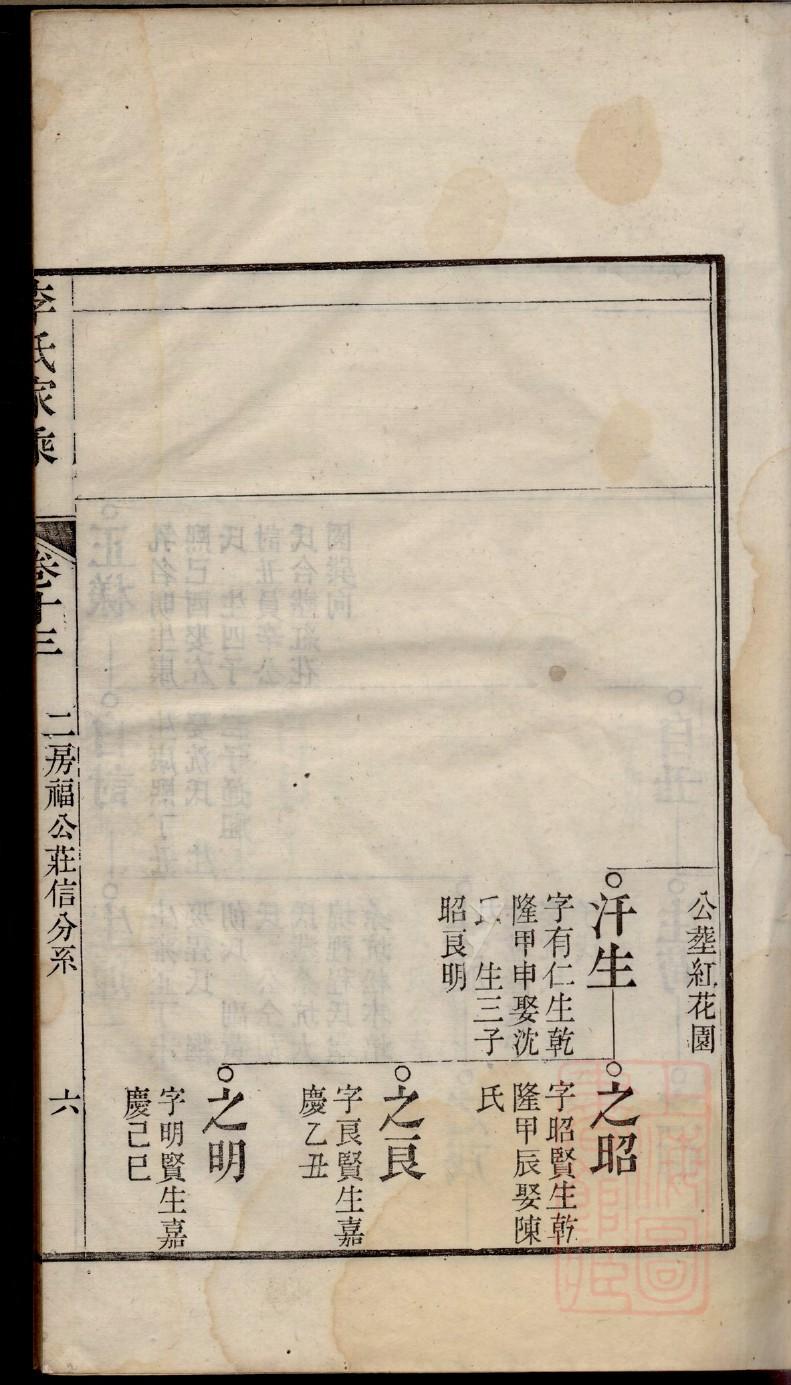 公塟紅花園
汗生
字有仁生乾
隆甲申娶沈
氏 生三子
昭良明
之昭
字昭賢生乾
隆甲辰娶陳
氏
之良
字良賢生嘉
慶乙丑
之明
字明賢生嘉
慶己巳
李氏家乘
卷十三
二房福公莊信分系
六